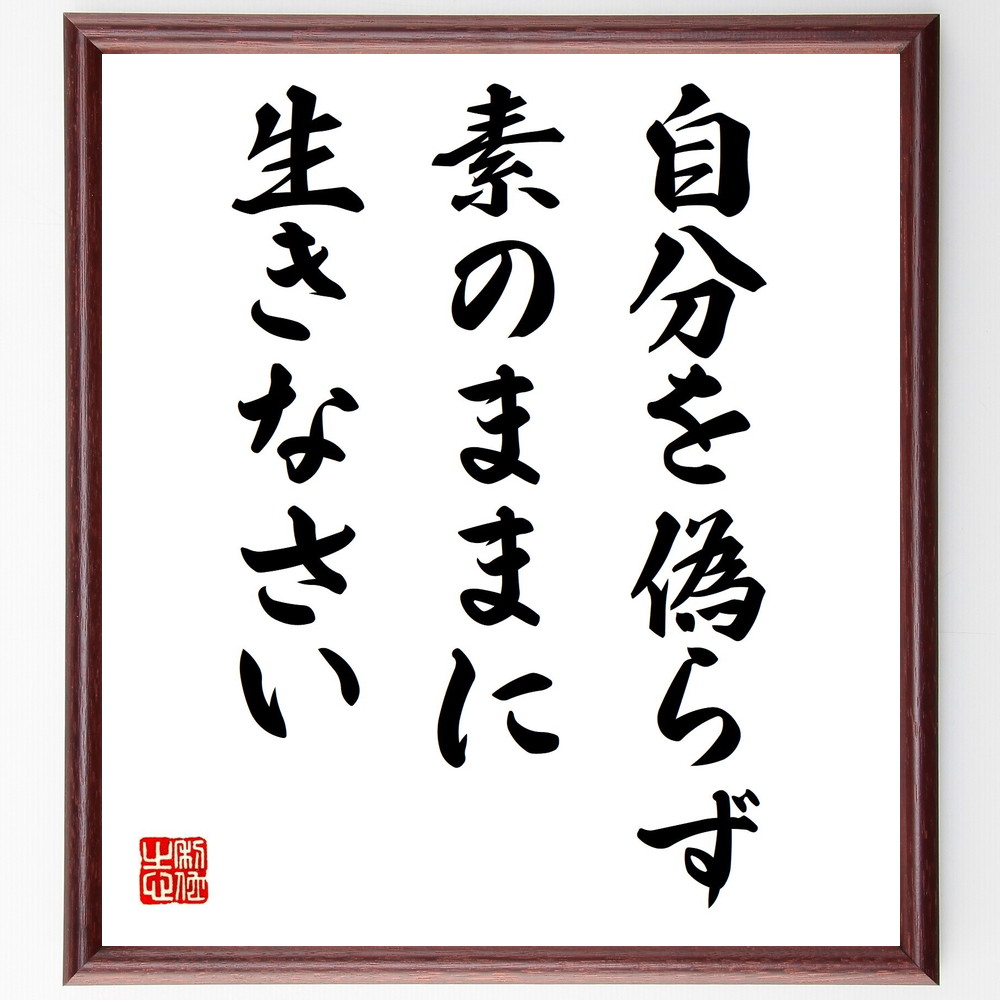 自分を偽らず
素のままに
生きなさい